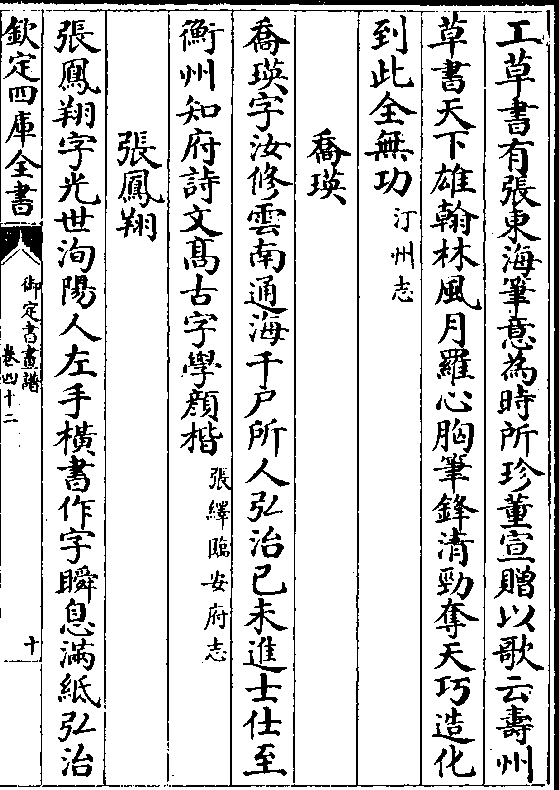 工草書有張東海筆意為時所珍董宣贈以歌云壽州
草書天下雄翰林風月羅心胸筆鋒清勁奪天巧造化
到此全無功汀州志
喬瑛
喬瑛字汝修雲南通海千戶所人弘治己未進士仕至
衡州知府詩文髙古字學顔楷張繹臨安府志
張鳳翔
張鳳翔字光世洵陽人左手橫書作字瞬息滿紙弘治
欽定四庫全書
御定書畫譜
卷四十二
十